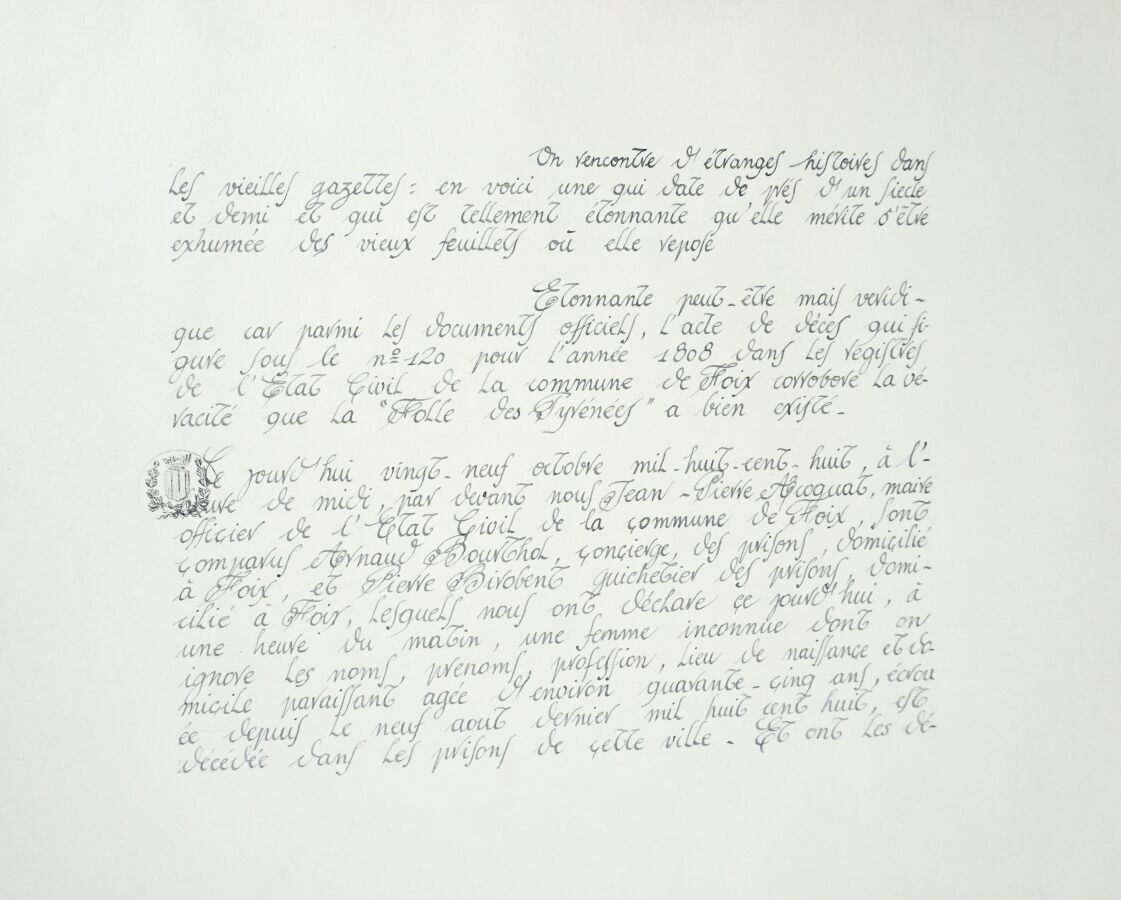 On rencontre d'étranges histoires dans
les vieilles gazettes : en voici une qui date de près d'un siècle
et demi et qui est tellement étonnante qu'elle mérite d'être
exhumée des vieux feuillets où elle repose
Etonnante peut-être mais véridi-
que car parmi les documents officiels, l'acte de décès qui fi-
gure sous le nº 120 pour l'année 1808 dans les régistres
de l'Etat Civil de la commune de Foix corrobore la vé-
racité que la "Folle des Pyrénées" a bien existé -
Ce jourd'hui vingt-neuf octobre mil-huit-cent-huit, à l'-
eure de midi, par devant nous Jean-Pierre Acoquat, maire
officier de l'Etat Civil de la commune de Foix, sont
comparus Arnaud Bourthol, conçierge, des prisons, domicilié
à Foix, et Pierre Birobent guichetier des prisons, domi-
cilié à Foix, lesquels nous ont déclare çe jourd'hui, à
une heure du matin, une femme inconnue dont on
ignore les noms, prenoms, profession, lieu de naissançe et do-
miçile paraissant agée d'environ quarante-çinq ans, écrou
ée depuis le neuf aout dernier mil huit cent huit, est
décédée dans les prisons de çette ville - Et ont les dé-